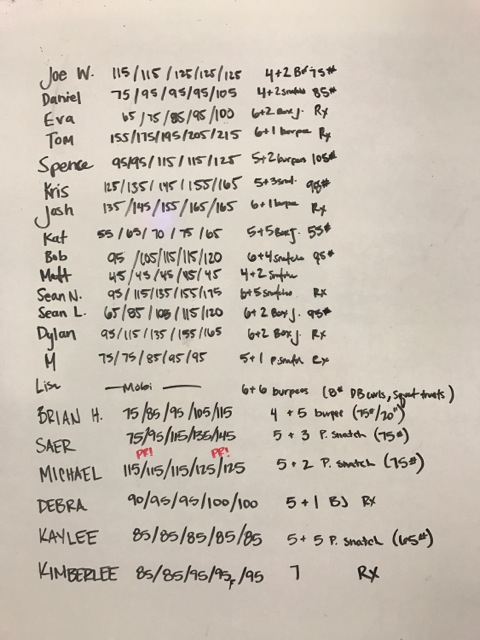 Joe W. 115/115/125/125/125 4+2 75#
Daniel 75/95/95/95/105 4+2 snatches 85#
Eva 65/75/85/95/100 6+2 Box j. Rx
Tom 155/175/195/205/215 6+1 burpee Rx
Spence 95/95/115/115/125 5+2 burpees 105#
Kris 125/135/145/155/165 5+3 snat. 95#
Josh 135/145/155/165/165 6+1 burpee Rx
Kat 55/65/70/75/65 5+5 Box j. 55#
Bob 95/105/115/115/120 6+4 snatches 95#
Matt 45/45/45/45/45 4+2 snatches
Sean N. 95/115/135/155/175 6+5 snatches Rx
Sean L. 65/85/105/115/120 6+2 Box j. 95#
Dylan 95/115/135/155/165 6+2 Box j. Rx
M 75/75/85/95/95 5+1 p. snatch Rx
Lisa — Mobi — 6+6 burpees (8# DB curls, squat thrusts)
BRIAN H. 75/85/95/105/115 4+5 burpee (75#/20")
SAER 75/95/115/135/145 5+3 P. snatch (75#)
PR! PR!
MICHAEL 115/115/115/125/125 5+2 P. snatch (75#)
DEBRA 90/95/95/100/100 5+1 BJ Rx
KAYLEE 85/85/85/85/85 5+5 P. snatch (65#)
KIMBERLEE 85/85/95/95F/95 7 Rx